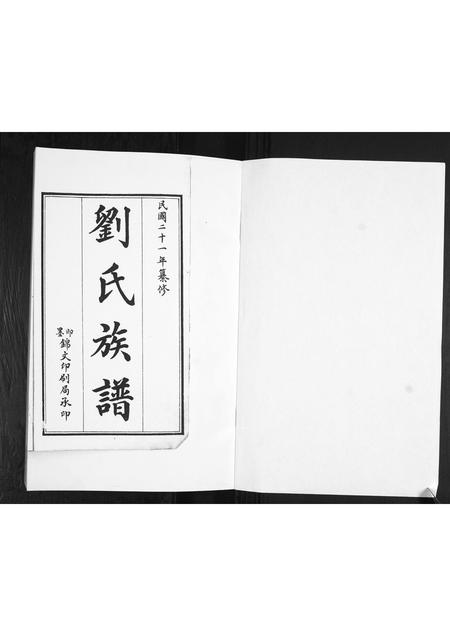 民國二十一年纂修
劉氏族譜
即墨錦文印刷局承印